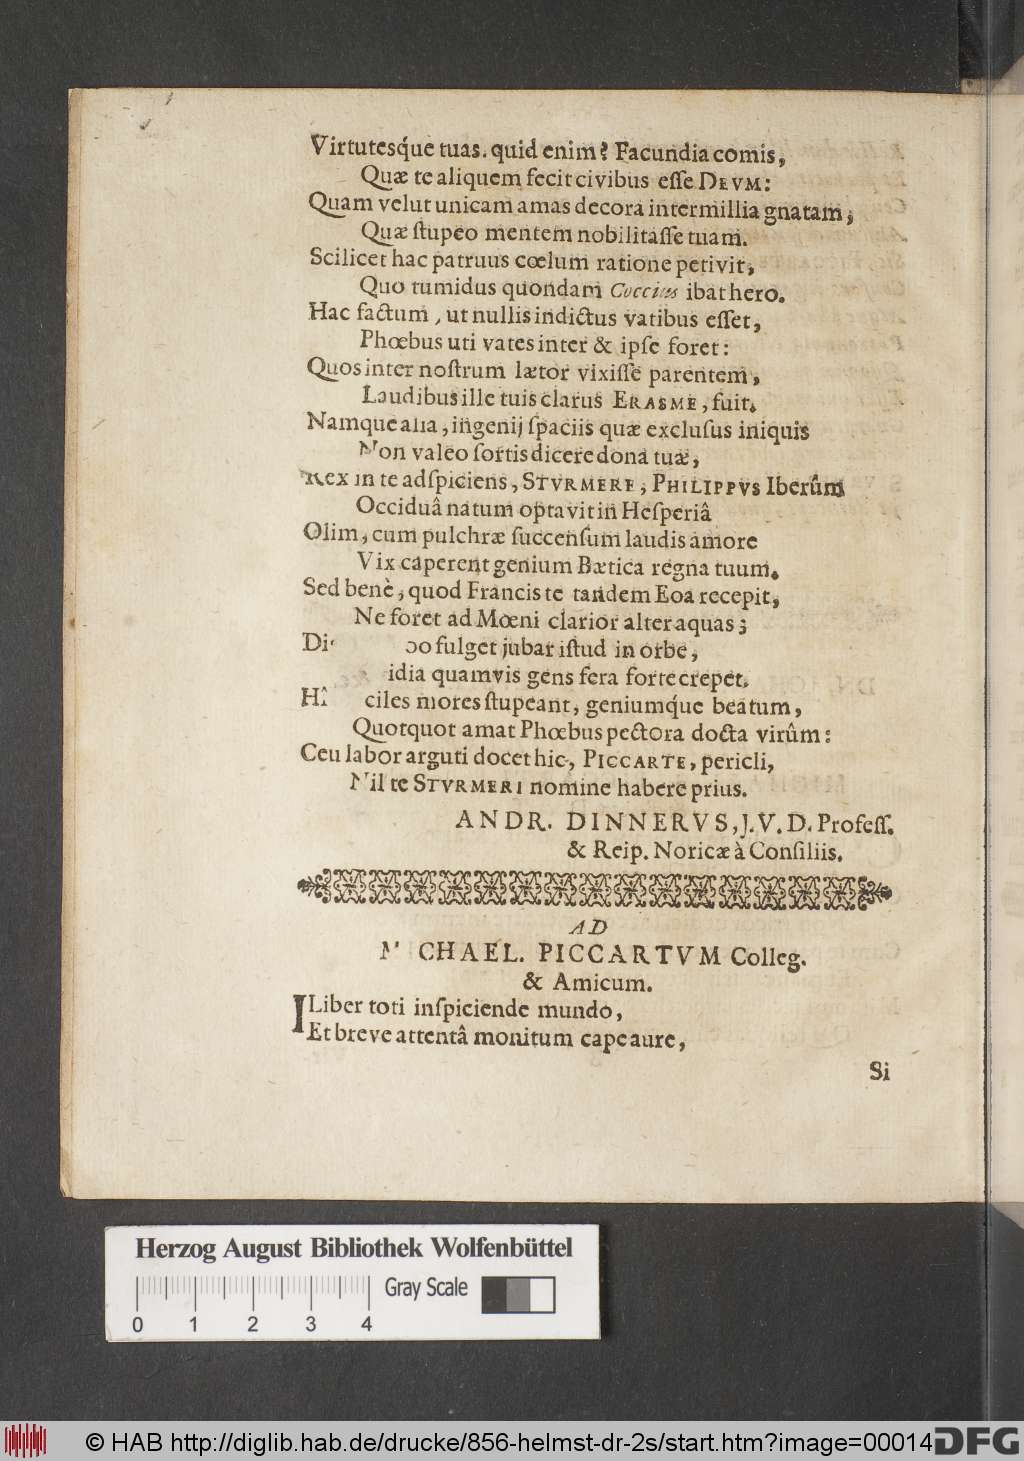 Virtutesq́ue tuas. quid enim? Facundia comis,
Quæ te aliquem fecit civibus eſſe DEVM:
Quam velut unicam amas decora inter millia gnatam,
Quæ ſtupeo mentem nobilitaſſe tuam.
Scilicet hac patruus cœlum ratione petivit,
Quo tumidus quondam Coccius ibat hero.
Hac factum, ut nullis indictus vatibus eſſet,
Phœbus uti vates inter & ipſe foret:
Quos inter noſtrum lætor vixiſſe parentem,
Laudibus ille tuis clarus ERASME, fuit.
Namque alia, ingenij ſpaciis quæ excluſus iniquis
Non valeo ſortis dicere dona tuæ,
Rex in te adſpiciens, STVRMERE, PHILIPPVS Iberûm
Occiduâ natum optavit in Heſperiâ
Olim, cum pulchræ ſuccenſum laudis amore
Vix caperent genium Bætica regna tuum.
Sed benè, quod Francis te tandem Eoa recepit,
Ne foret ad Mœni clarior alter aquas;
Di oo fulget jubar iſtud in orbe,
idia quamvis gens fera forte crepet.
Hî ciles mores ſtupeant, geniumq́ue beatum,
Quotquot amat Phœbus pectora docta virûm:
Ceu labor arguti docet hic, PICCARTE, pericli,
Nil te STVRMERI nomine habere prius.
ANDR. DINNERVS, J. V. D. Profeſſ.
& Reip. Noricæ à Conſiliis.
AD
M CHAEL. PICCARTVM Colleg.
& Amicum.
I Liber toti inſpiciende mundo,
Et breve attentâ monitum cape aure,
Si
Herzog August Bibliothek Wolfenbüttel
Gray Scale
0 1 2 3 4
© HAB http://diglib.hab.de/drucke/856-helmst-dr-2s/start.htm?image=00014
DFG